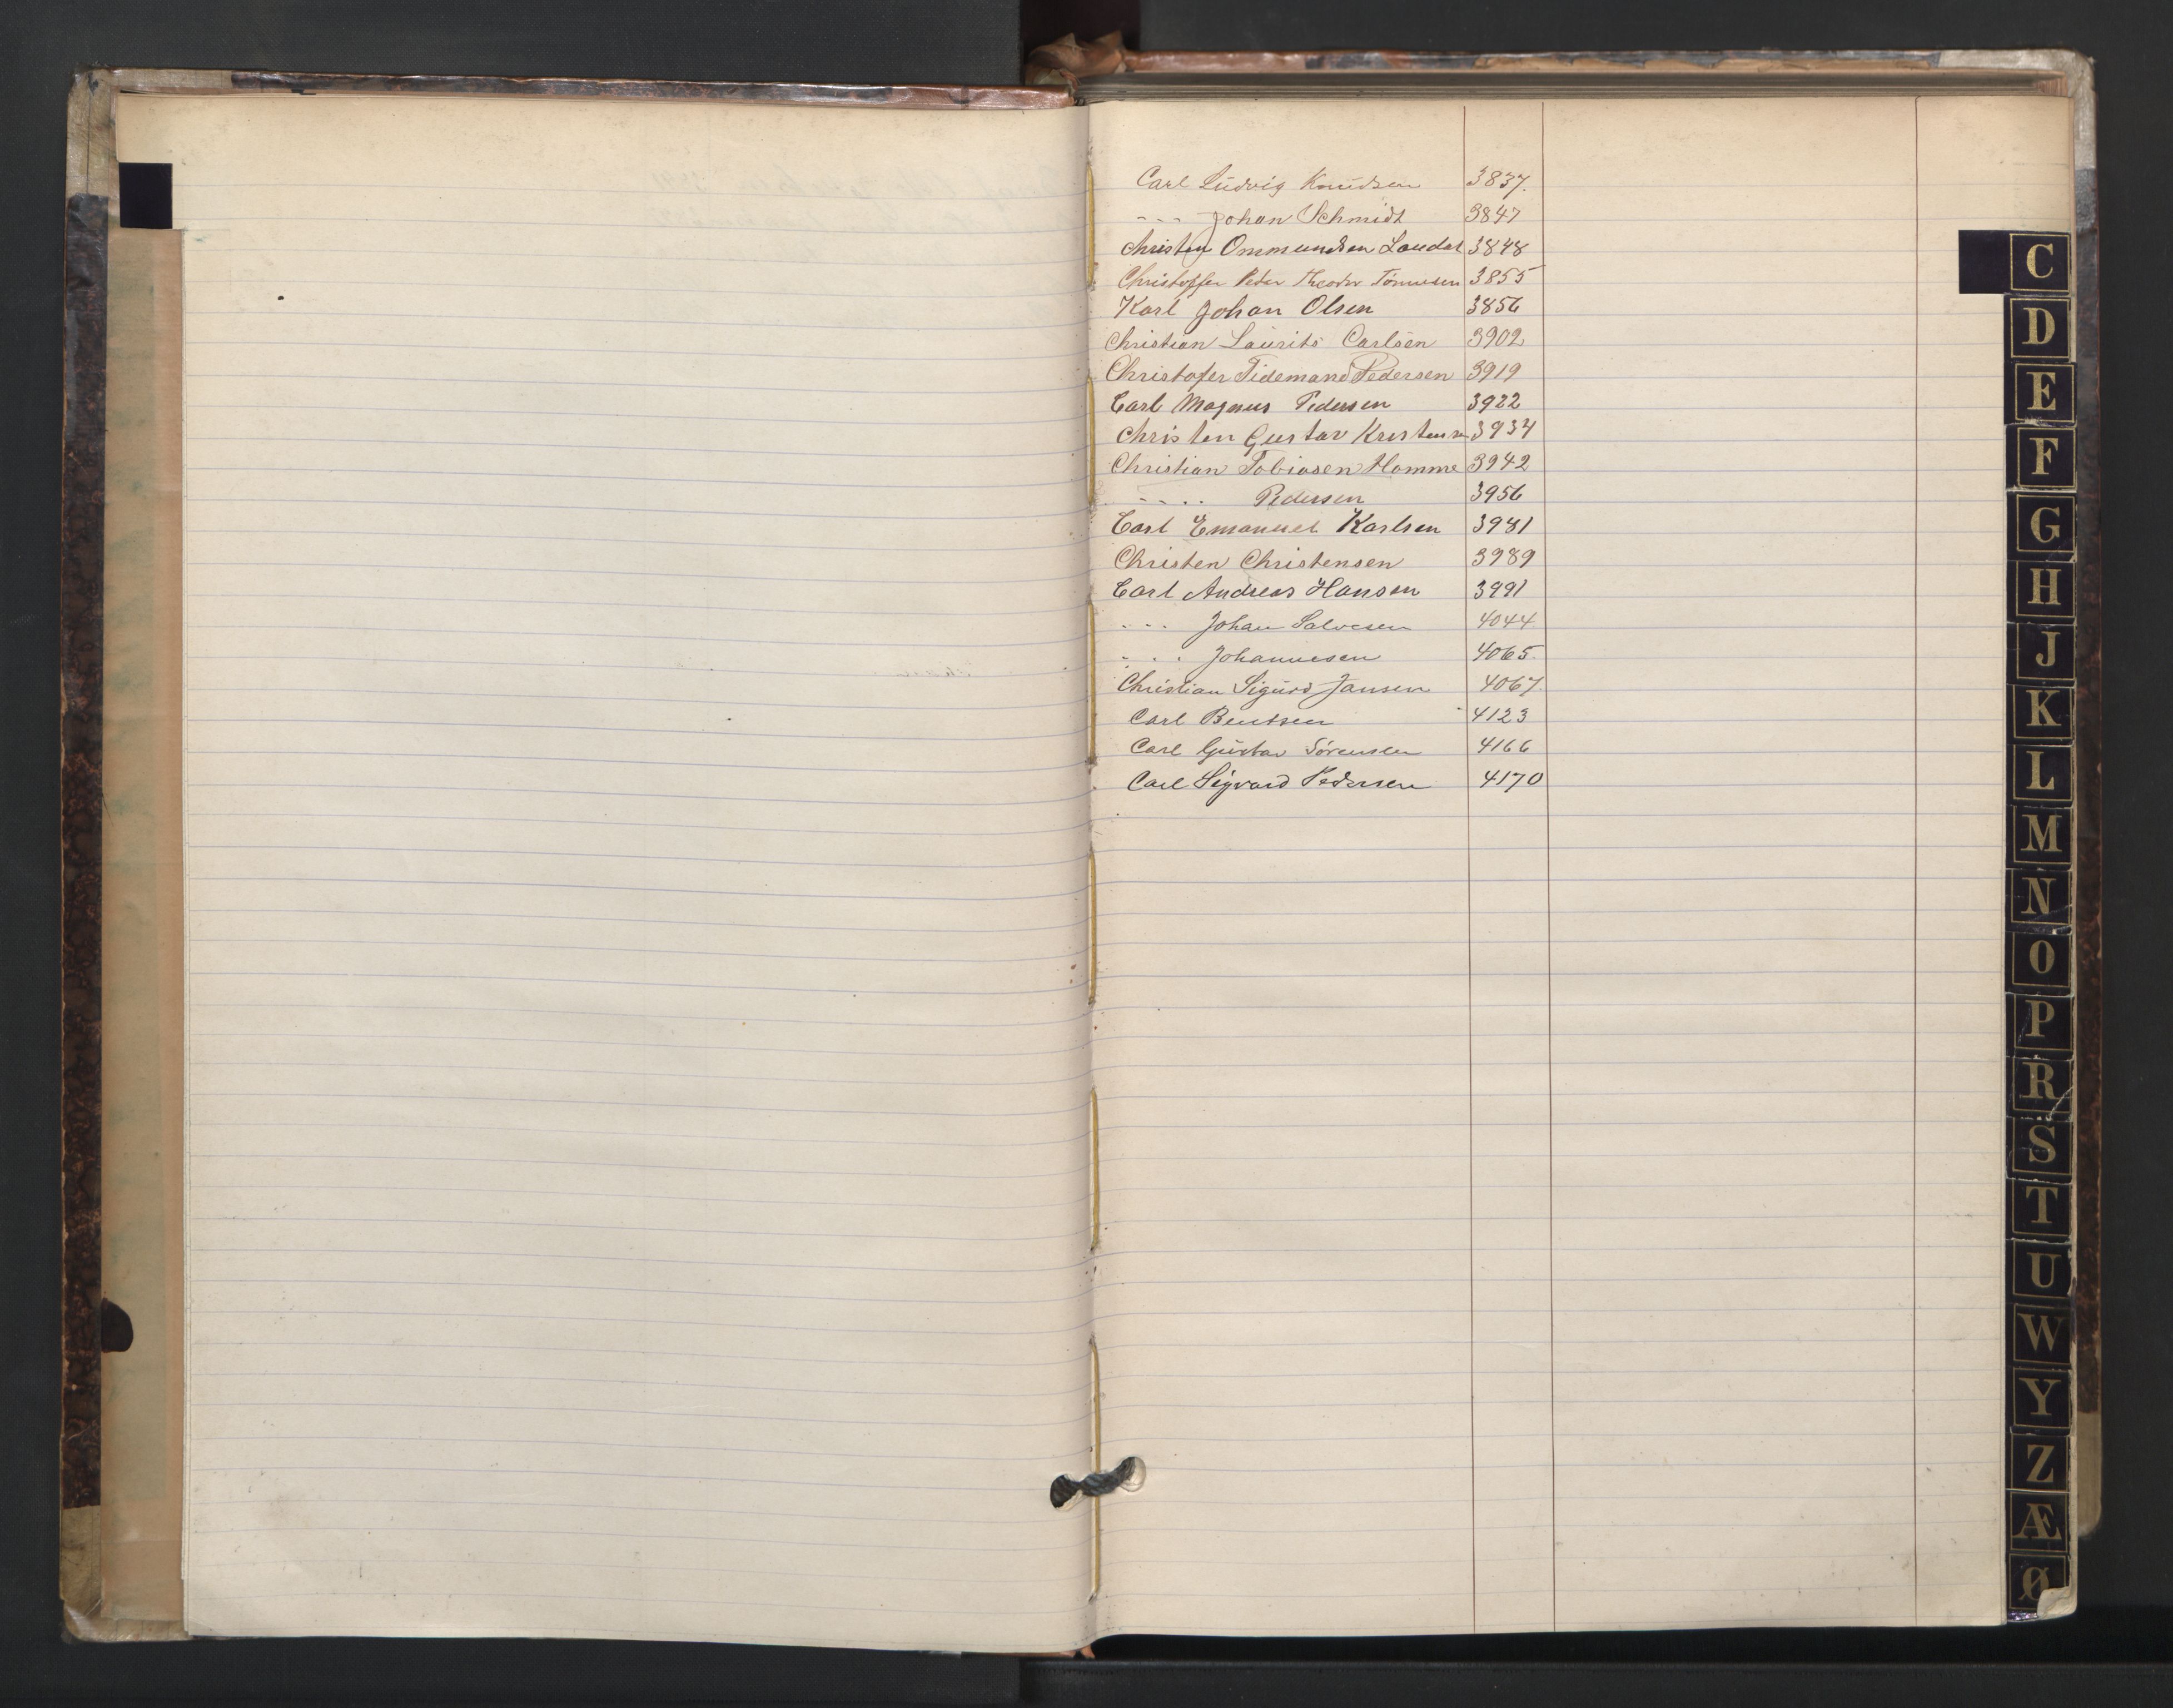 Carl Ludvig Knudsen 3837.
- - - Johan Schmidt 3847
Christen Ommundsen Laudal 3848
Christoffer Peder Theodor Tönnesen 3855
Karl Johan Olsen 3856
Christian Laurits Carlsen 3902
Christofer Tidemand Pedersen 3919
Carl Magnus Pedersen 3922
Christen Gustav Kristensen 3934
Christian Tobiasen Homme 3942
- - - - Pedersen 3956
Carl Emanuel Karlsen 3981
Christen Christensen 3989
Carl Andreas Hansen 3991
- - - Johan Salvesen 4044
- - - Johannesen 4065.
Christian Sigurd Jansen 4067.
Carl Bentsen 4123
Carl Gustav Sörensen 4166
Carl Sigvard Pedersen 4170
C
D
E
F
G
H
J
K
L
M
N
O
P
R
S
T
U
W
Y
Z
Æ
Ø